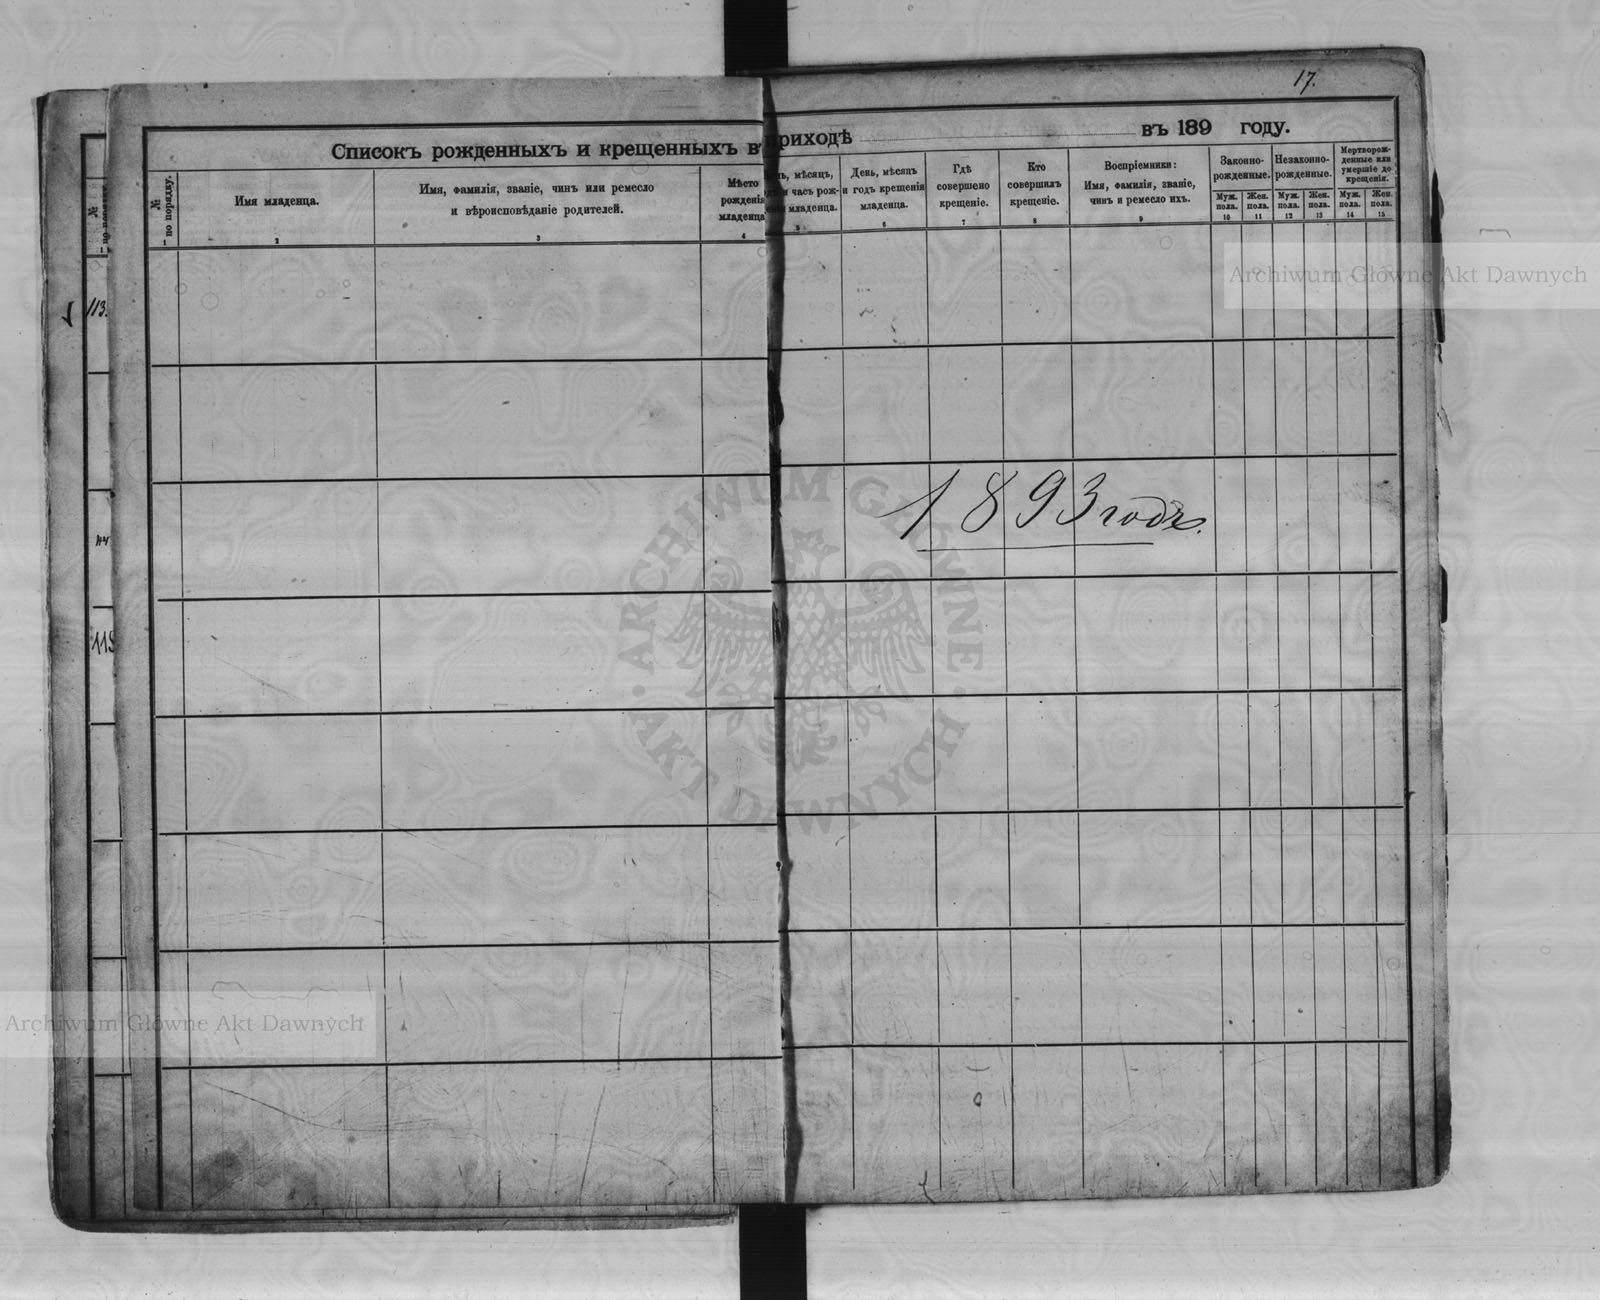 17.
Списокъ рожденныхъ и крещенныхъ въ приходѣ въ 189 году.
№ по порядку.
Имя младенца.
Имя, фамилія, званіе, чинъ или ремесло
и вѣроисповѣданіе родителей.
Мѣсто
рожденія
младенца
мѣсяцъ,
и часъ рож-
младенца.
День, мѣсяцъ
и годъ крещенія
младенца.
Гдѣ
совершено
крещеніе.
Кто
совершилъ
крещеніе.
Воспріемники:
Имя, фамилія, званіе,
чинъ и ремесло ихъ.
Законно-
рожденные.
Незаконно-
рожденные.
Мертворож-
денные или
умершіе до
крещенія.
Муж.
пола.
Жен.
пола.
Муж.
пола.
Жен.
пола.
Муж.
пола.
Жен.
пола.
1 2 3 4 5 6 7 8 9 10 11 12 13 14 15
113.
114
115
1893 годъ.
Archiwum Główne Akt Dawnych
ARCHIWUM GŁÓWNE · AKT DAWNYCH ·
Archiwum Główne Akt Dawnych